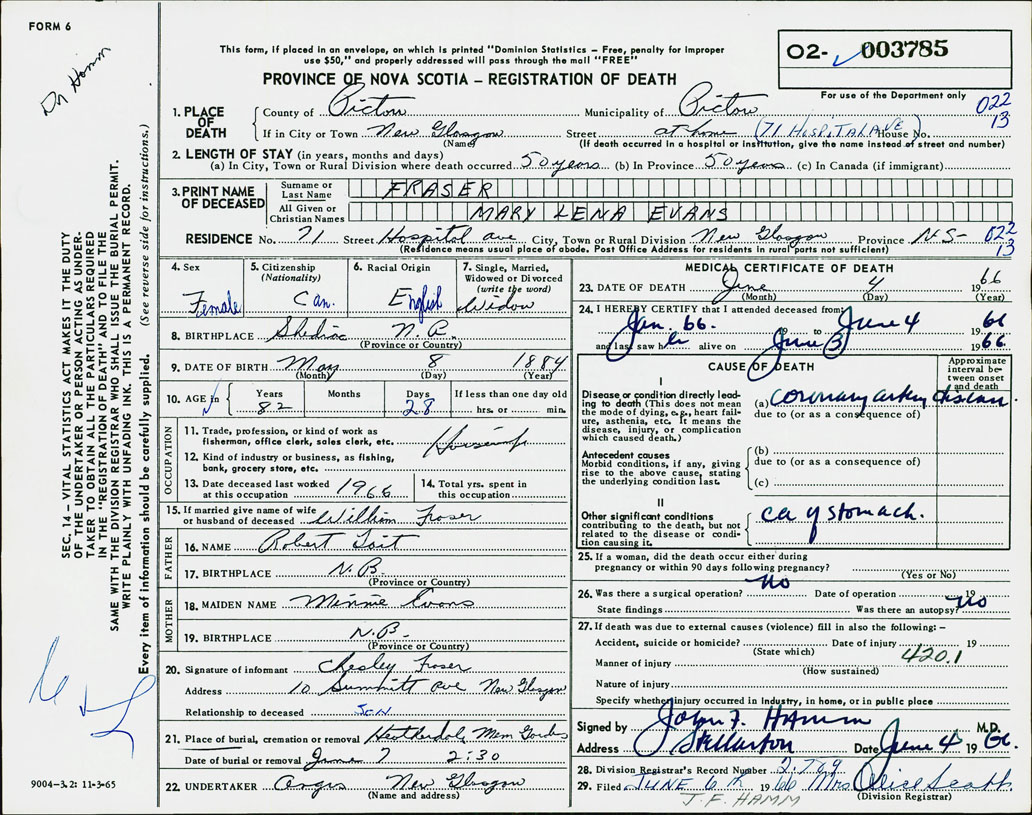 FORM 6
Dr Hamm
This form, if placed in an envelope, on which is printed "Dominion Statistics – Free, penalty for improper
use $50," and properly addressed will pass through the mail "FREE"
PROVINCE OF NOVA SCOTIA – REGISTRATION OF DEATH
02- 003785
For use of the Department only
022
13
1. PLACE OF DEATH
County of Pictou Municipality of Pictou
If in City or Town New Glasgow Street at home (71 HOSPITAL AVE) House No.
(Name) (If death occurred in a hospital or institution, give the name instead of street and number)
2. LENGTH OF STAY (in years, months and days)
(a) In City, Town or Rural Division where death occurred 50 years (b) In Province 50 years (c) In Canada (if immigrant)
3. PRINT NAME OF DECEASED
Surname or Last Name FRASER
All Given or Christian Names MARY LENA EVANS
RESIDENCE No. 71 Street Hospital ave City, Town or Rural Division New Glasgow Province N.S- 022
13
(Residence means usual place of abode. Post Office Address for residents in rural parts not sufficient)
4. Sex Female
5. Citizenship (Nationality) Can.
6. Racial Origin English
7. Single, Married, Widowed or Divorced (write the word) Widow
8. BIRTHPLACE Shediac N.B.
(Province or Country)
9. DATE OF BIRTH May 8 1884
(Month) (Day) (Year)
10. AGE in Years 82 Months Days 28 If less than one day old hrs. or min.
OCCUPATION
11. Trade, profession, or kind of work as fisherman, office clerk, sales clerk, etc.
12. Kind of industry or business, as fishing, bank, grocery store, etc.
13. Date deceased last worked at this occupation 1966
14. Total yrs. spent in this occupation
15. If married give name of wife or husband of deceased William Fraser
FATHER
16. NAME Robert Tait
17. BIRTHPLACE N.B.
(Province or Country)
MOTHER
18. MAIDEN NAME Minnie Evans
19. BIRTHPLACE N.B.
(Province or Country)
20. Signature of informant Chesley Fraser
Address 10 Summitt ave New Glasgow
Relationship to deceased Son
21. Place of burial, cremation or removal Heatherdale Mem Gardns
Date of burial or removal June 7 2:30
22. UNDERTAKER Angus New Glasgow
(Name and address)
MEDICAL CERTIFICATE OF DEATH
23. DATE OF DEATH June 4 1966
(Month) (Day) (Year)
24. I HEREBY CERTIFY that I attended deceased from
Jan. 66. 19 to June 4 1966
and last saw her alive on June 3 1966
CAUSE OF DEATH
Approximate interval between onset and death
I
Disease or condition directly leading to death (This does not mean the mode of dying, e.g., heart failure, asthenia, etc. It means the disease, injury, or complication which caused death.)
(a) coronary artery disease
due to (or as a consequence of)
Antecedent causes
Morbid conditions, if any, giving rise to the above cause, stating the underlying condition last.
(b)
due to (or as a consequence of)
(c)
II
Other significant conditions
contributing to the death, but not related to the disease or condition causing it.
ca of stomach.
25. If a woman, did the death occur either during
pregnancy or within 90 days following pregnancy?
(Yes or No)
26. Was there a surgical operation? no Date of operation 19
State findings Was there an autopsy? no
27. If death was due to external causes (violence) fill in also the following: –
Accident, suicide or homicide? Date of injury 19
(State which) 420.1
Manner of injury
(How sustained)
Nature of injury
Specify whether injury occurred in Industry, in home, or in public place
Signed by John F. HAMM M.D.
Address Stellarton Date June 4 1966.
28. Division Registrar's Record Number
29. Filed JUNE 6th 1966 Mrs Alice Scott
(Division Registrar)
J.F. HAMM
SEC. 14 – VITAL STATISTICS ACT MAKES IT THE DUTY
OF THE UNDERTAKER OR PERSON ACTING AS UNDER-
TAKER TO OBTAIN ALL THE PARTICULARS REQUIRED
IN THE "REGISTRATION OF DEATH" AND TO FILE THE
SAME WITH THE DIVISION REGISTRAR WHO SHALL ISSUE THE BURIAL PERMIT.
WRITE PLAINLY WITH UNFADING INK. THIS IS A PERMANENT RECORD.
Every item of information should be carefully supplied. (See reverse side for instructions.)
9004–3.2: 11-3-65